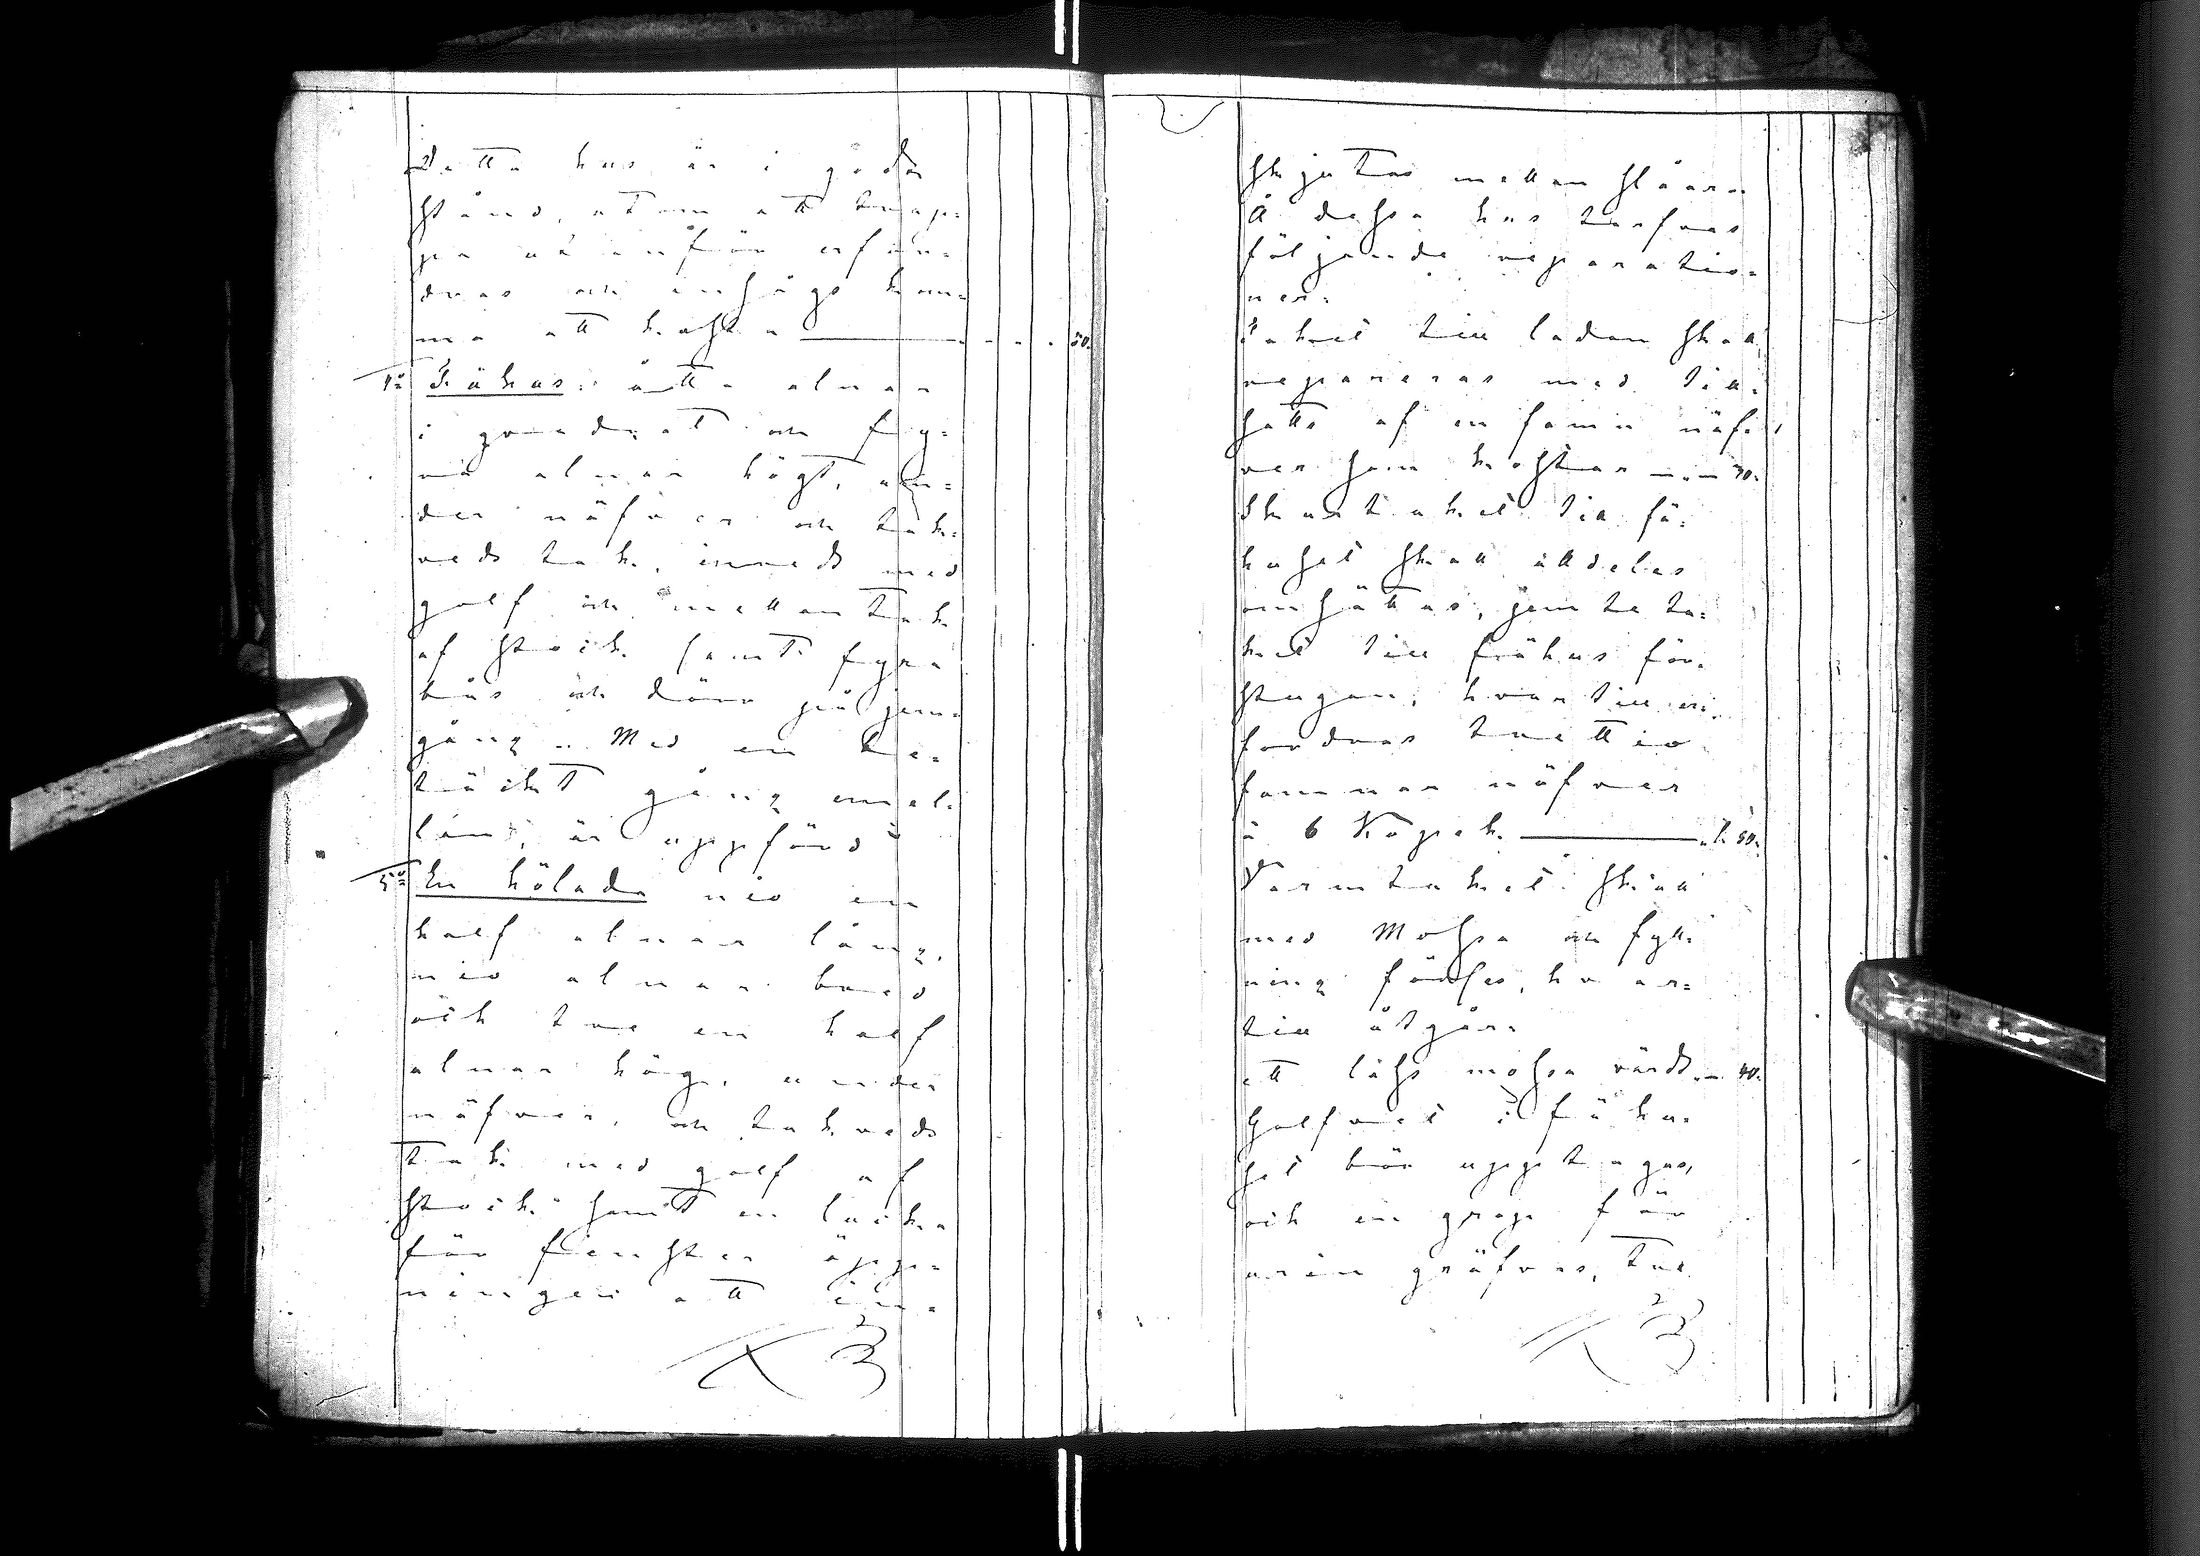 Detta hus är i godt
stånd, utom att trap-
pa utanför erfor-
dras och ansågs kom-
ma att kosta — 50.
4o Fähus: åtta alnar
i qvadrat och fy-
ra alnar högt, un-
der näfver och tak-
veds tak, inredt med
golf och mellantak
af stock samt fyra
bås och dörr på jern-
gång. Med en be-
täckt gång emel-
lan, är uppförd
5o En hölada nio en
half alnar lång,
nio alnar bred
och tre en half
alnar hög, under
näfver, och takveds
tak med golf af
stock samt en lucka
för fenster öpp-
ningen att in-
skjutas mellan slåar.
Å dessa hus tarfvas
följande reparatio-
ner:
Taket till ladan skall
repareras med till-
satts af en famn näf-
ver som kostar — 70.
Skurtaket till fä-
huset skall alldeles
omsättas, jemte ta-
ket till fähus för-
stugan, hvartill er-
fordras trettio
famnar näfver
à 6 Kopek. — 1. 80.
Varmtaket skall
med Mossa och fyll-
ning förses, hvar-
till åtgår.
ett lass mossa värdt — 40.
Golfvet i fähu-
set bör upptagas,
och en grop för
urin gräfvas, tre